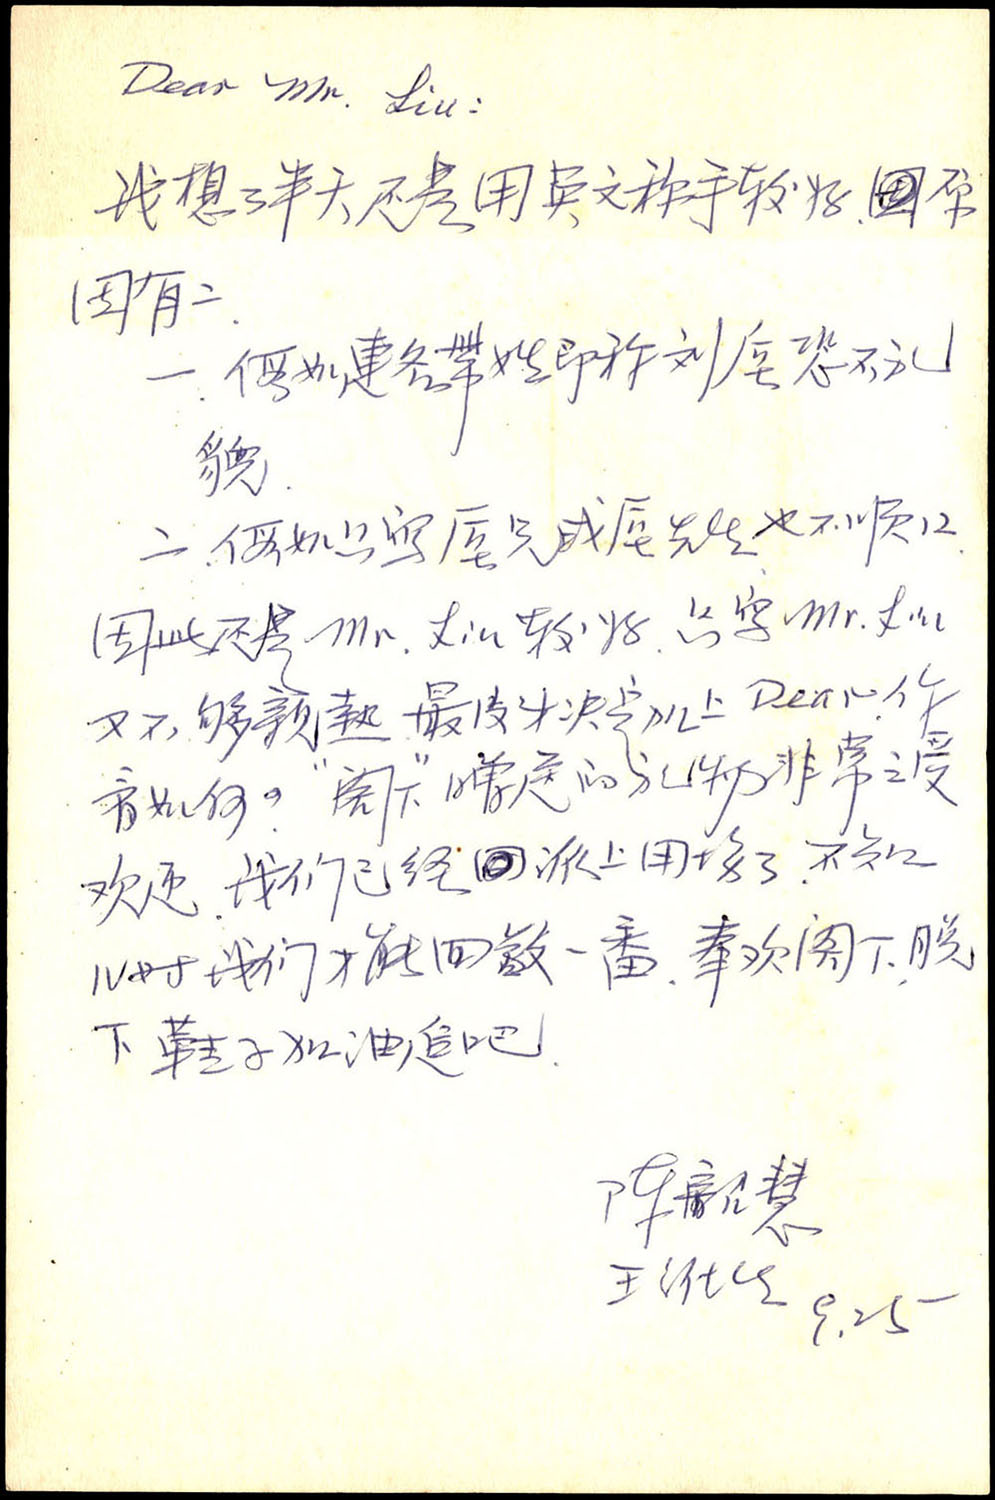 Dear Mr. Liu:
我想了半天还是用英文称乎较好.原
因有二.
一.假如连名带姓即称刘唇恐不礼
貌.
二.假如只写唇兄或唇先生也不顺口.
因此还是 Mr. Liu 较好.只写 Mr. Liu
又不够亲热 最后才决定加上 Dear.
意如何。"阁下"赠送的礼物非常之受
欢迎.我们已经派上用场了.不知
何时我们才能回敬一番.奉劝阁下.脱
下鞋子加油追吧.
陈韶慧
王 生
9.25